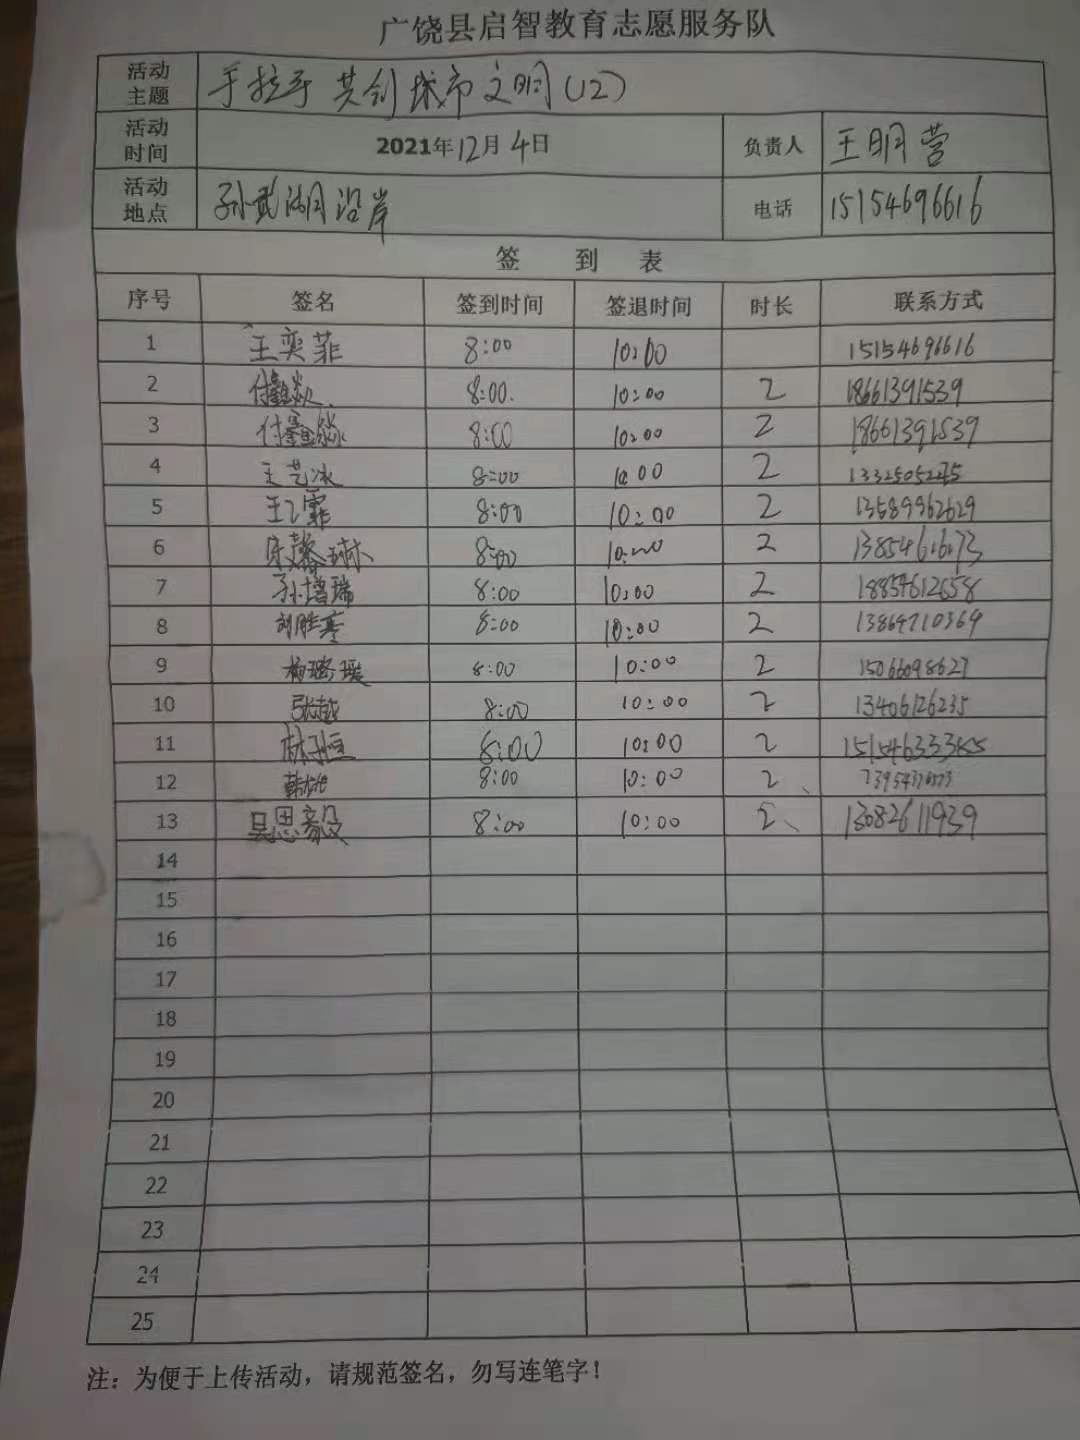 广饶县启智教育志愿服务队
活动主题 手拉手 共创城市文明(12)
活动时间 2021年12月4日 负责人 王明营
活动地点 孙武湖沿岸 电话 15154696616
签 到 表
序号 签名 签到时间 签退时间 时长 联系方式
1 王奕菲 8:00 10:00 15154696616
2 8:00. 10:00 2 18661391539
3 8:00 10:00 2 18661391539
4 王艺冰 8:00 10:00 2
5 王乙霏 8:00 10:00 2 13589962629
6 宋馨琳 8:00 10:00 2
7 孙增瑞 8:00 10:00 2 18854612658
8 8:00 10:00 2 13864710369
9 杨璐瑗 8:00 10:00 2 15066098627
10 张越 8:00 10:00 2 13406126235
11 8:00 10:00 2
12 8:00 10:00 2、
13 吴思毅 8:00 10:00 2、 13082611939
14
15
16
17
18
19
20
21
22
23
24
25
注：为便于上传活动，请规范签名，勿写连笔字！